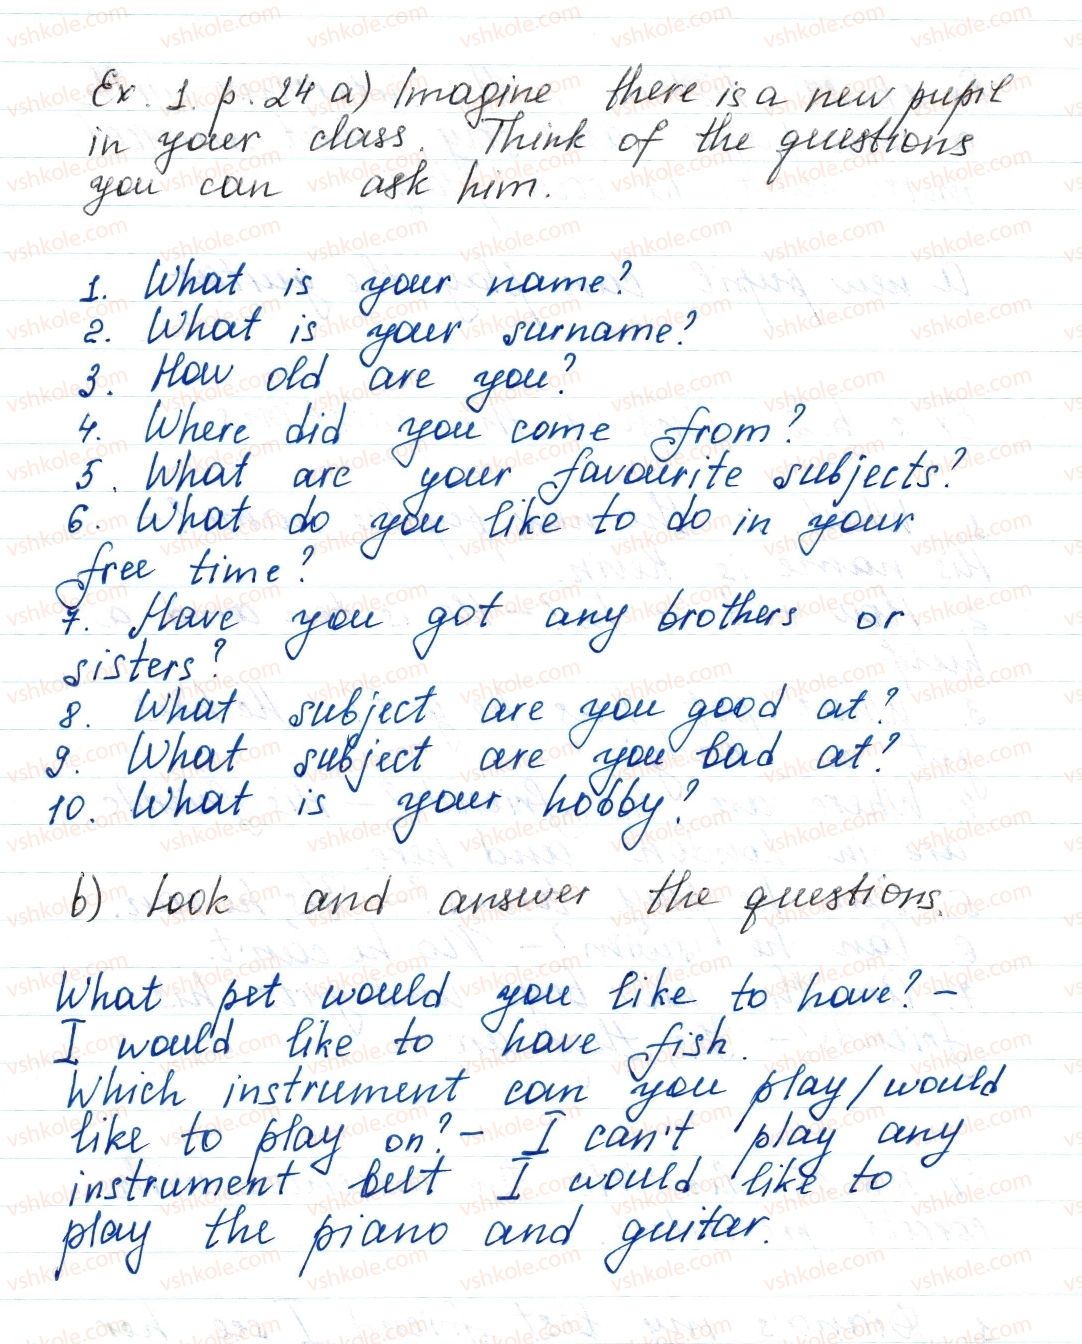 Ex. 1. p. 24 a) Imagine there is a new pupil
in your class. Think of the questions
you can ask him.
1. What is your name?
2. What is your surname?
3. How old are you?
4. Where did you come from?
5. What are your favourite subjects?
6. What do you like to do in your
free time?
7. Have you got any brothers or
sisters?
8. What subject are you good at?
9. What subject are you bad at?
10. What is your hobby?
b) Look and answer the questions.
What pet would you like to have? -
I would like to have fish.
Which instrument can you play/would
like to play on? - I can't play any
instrument but I would like to
play the piano and guitar.
vshkole.com